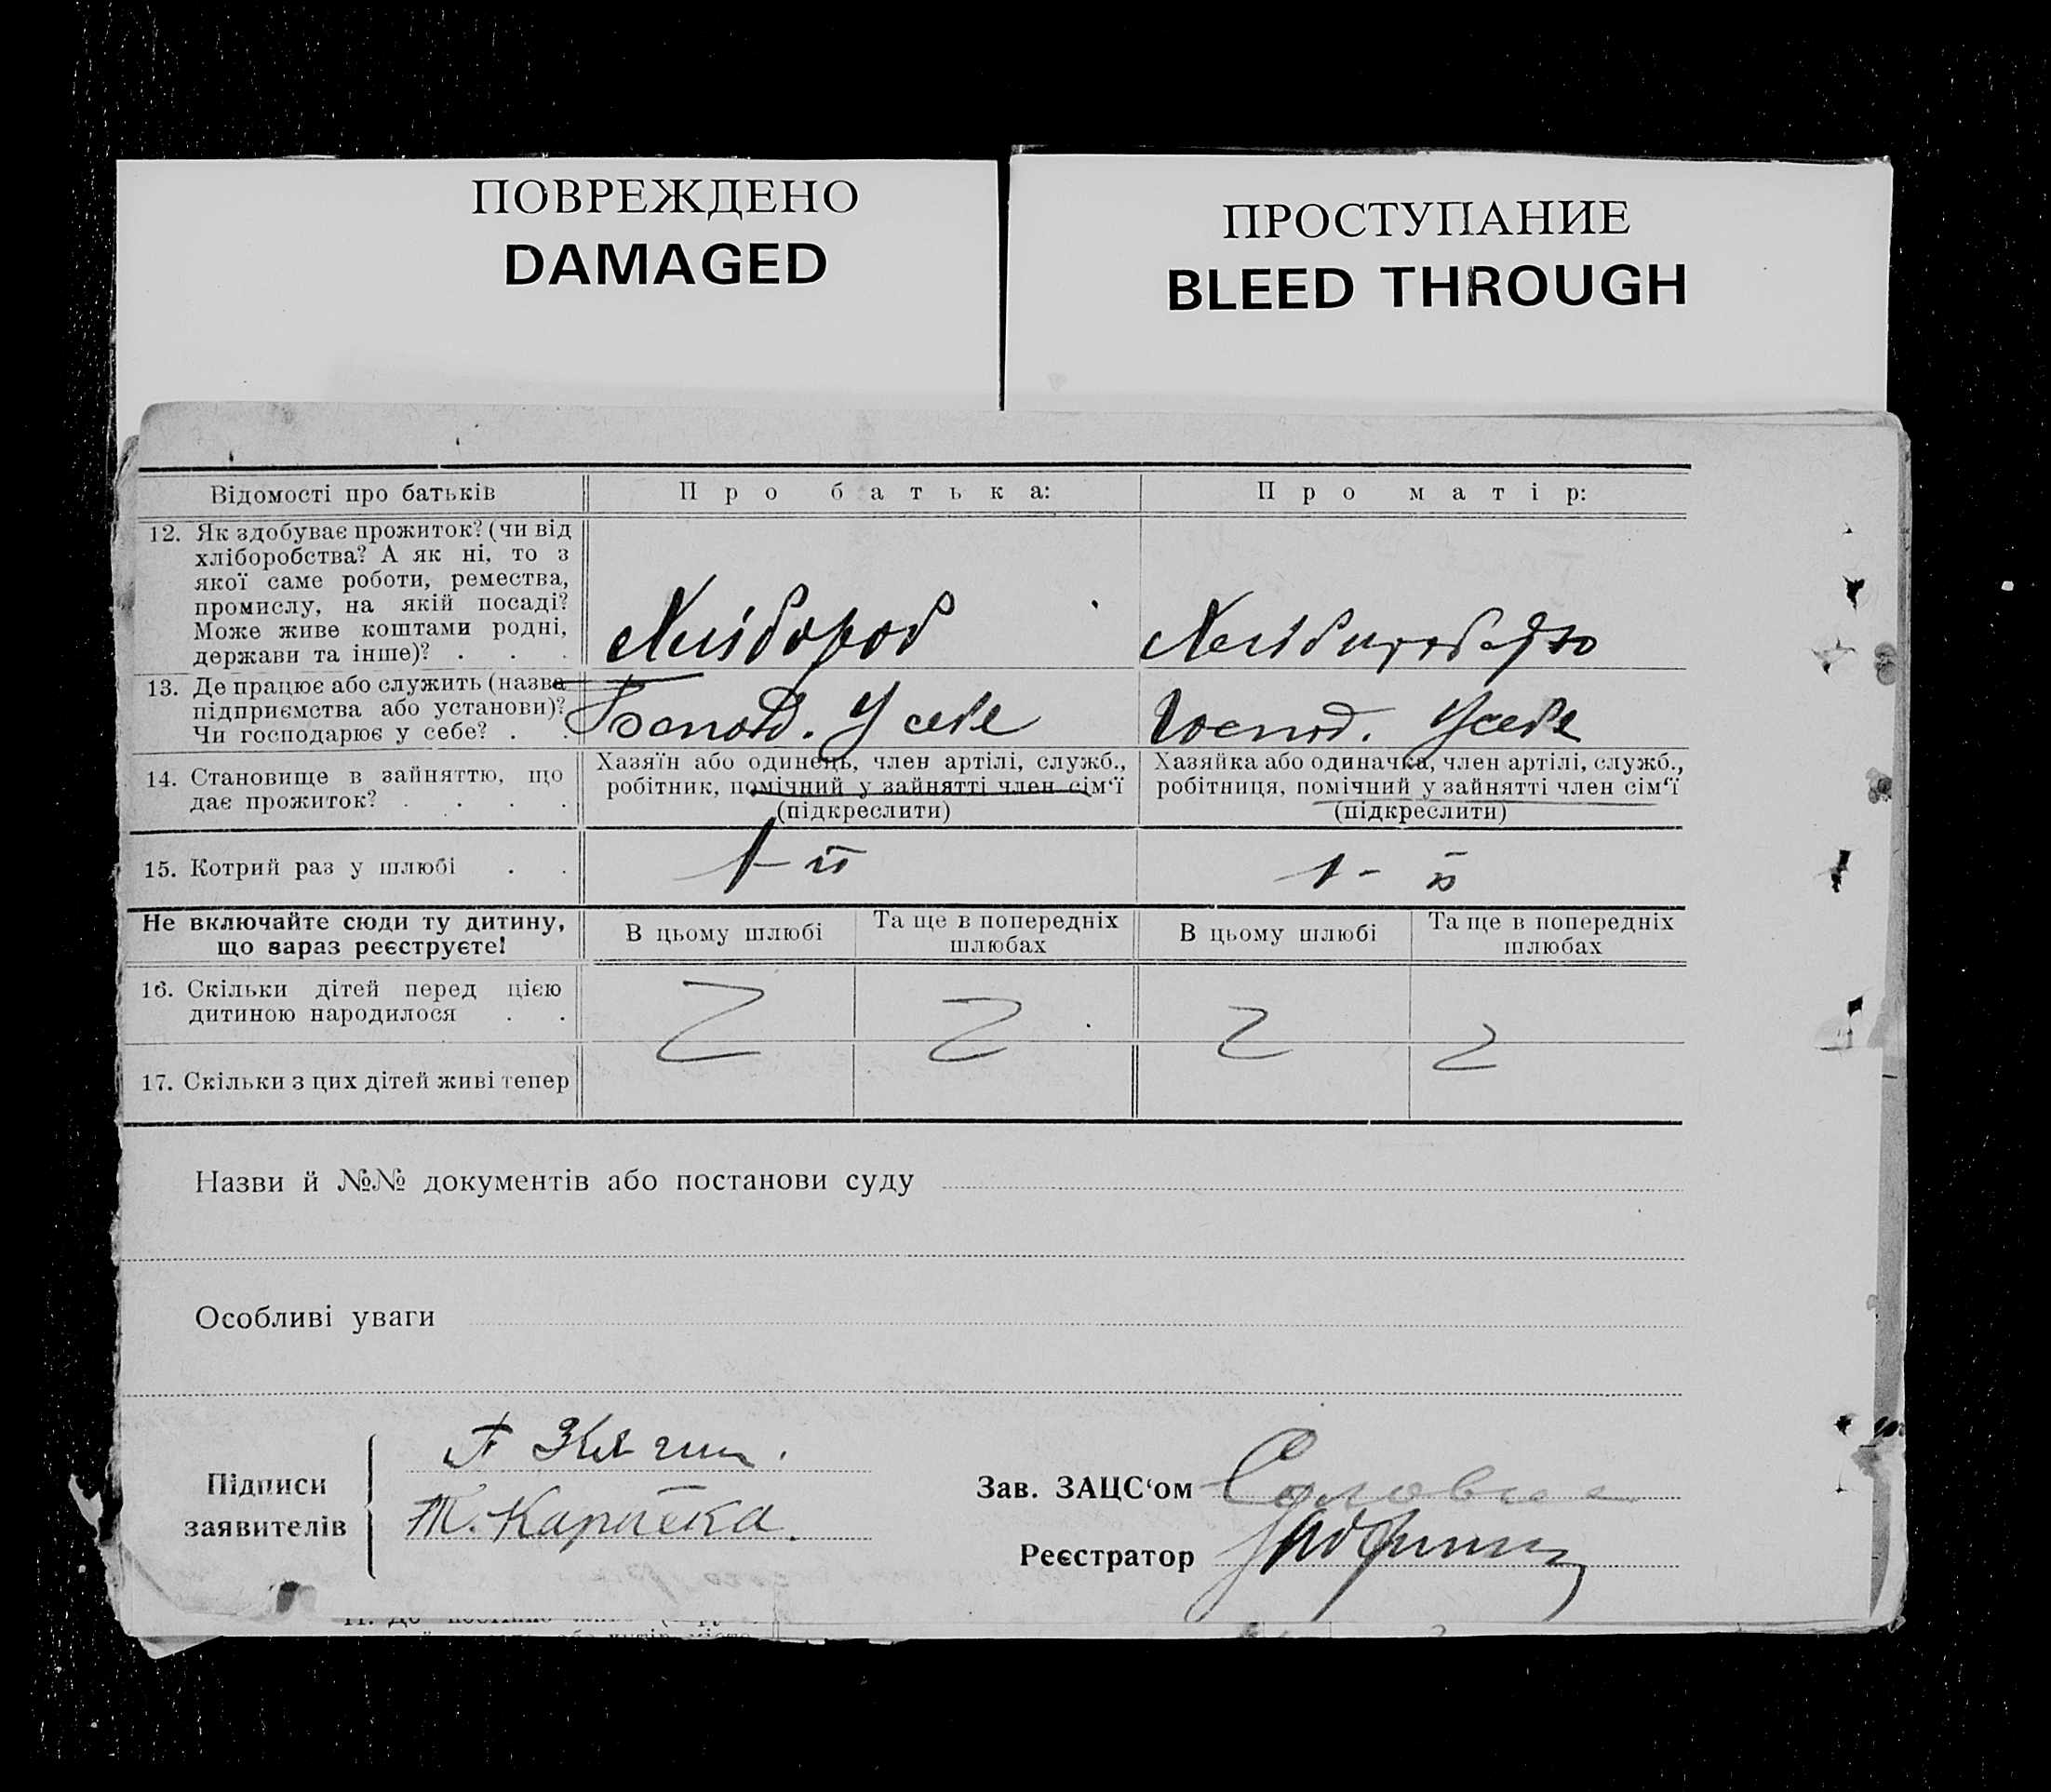 ПОВРЕЖДЕНО
DAMAGED
ПРОСТУПАНИЕ
BLEED THROUGH
Відомості про батьків
Про батька:
Про матір:
12. Як здобуває прожиток? (чи від
хліборобства? А як ні, то з
якої саме роботи, ремества,
промислу, на якій посаді?
Може живе коштами родні,
держави та інше)? . . .
Хлібороб
13. Де працює або служить (назва
підприємства або установи)?
Чи господарює у себе? . .
Господ. У себе
Господ. У себе
14. Становище в зайняттю, що
дає прожиток? . . . .
Хазяїн або одинець, член артілі, служб.,
робітник, помічний у зайнятті член сім'ї
(підкреслити)
Хазяйка або одиначка, член артілі, служб.,
робітниця, помічний у зайнятті член сім'ї
(підкреслити)
15. Котрий раз у шлюбі . .
1-й
1-й
Не включайте сюди ту дитину,
що зараз реєструєте!
В цьому шлюбі
Та ще в попередніх
шлюбах
В цьому шлюбі
Та ще в попередніх
шлюбах
16. Скільки дітей перед цією
дитиною народилося . .
17. Скільки з цих дітей живі тепер
Назви й №№ документів або постанови суду
Особливі уваги
Підписи
заявителів
Т. Карпека.
Зав. ЗАЦС'ом
Реєстратор